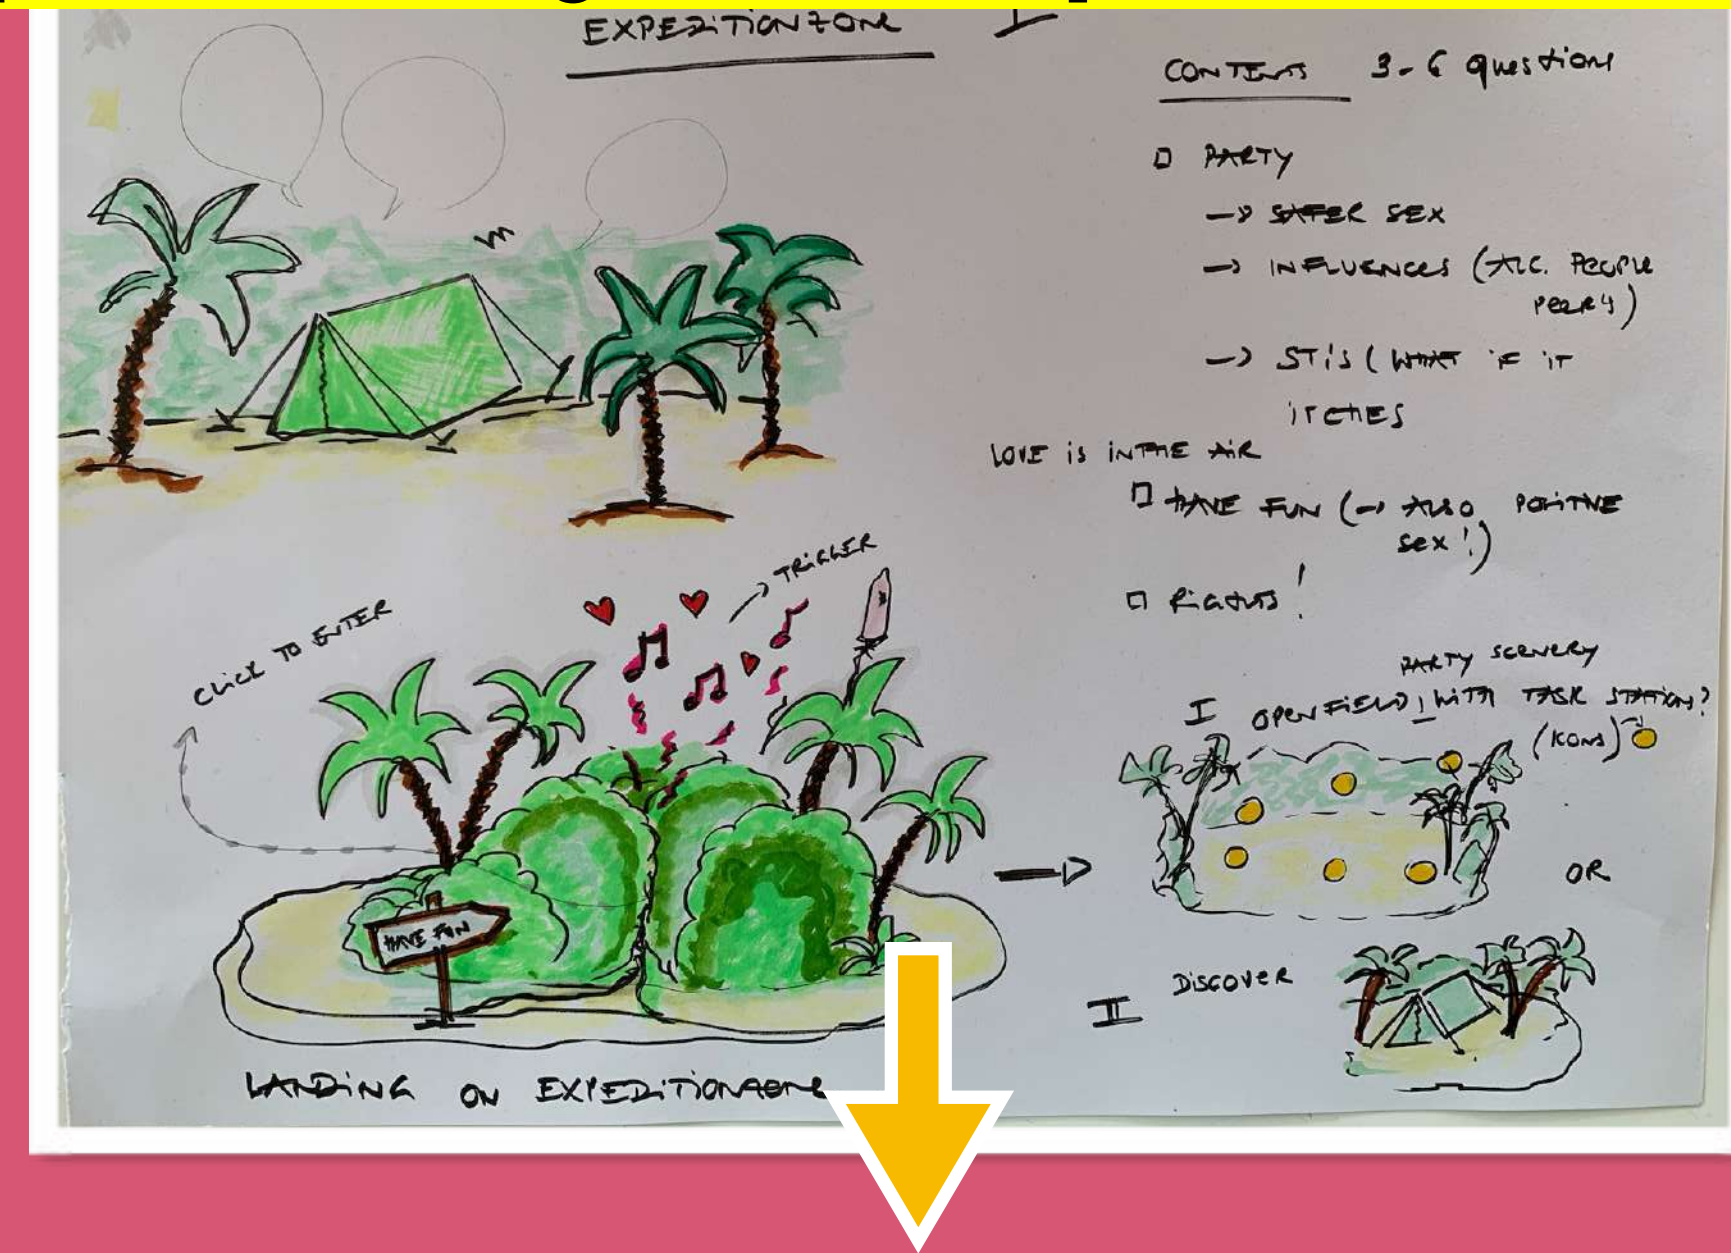 EXPEDITIONZONE I
CONTENTS 3-6 questions
PARTY
→ SAFER SEX
→ INFLUENCES (ALC. PEOPLE
PEERS)
→ STIS (WHAT IF IT
ITCHES
LOVE IS IN THE AIR
HAVE FUN (→ ALSO POSITIVE
SEX!)
RIGHTS!
TRIGGER
CLICK TO ENTER
PARTY SCENERY
I OPEN FIELD! WITH TASK STATIONS?
(ICONS)
HAVE FUN
OR
II DISCOVER
LANDING ON EXPEDITIONZONE